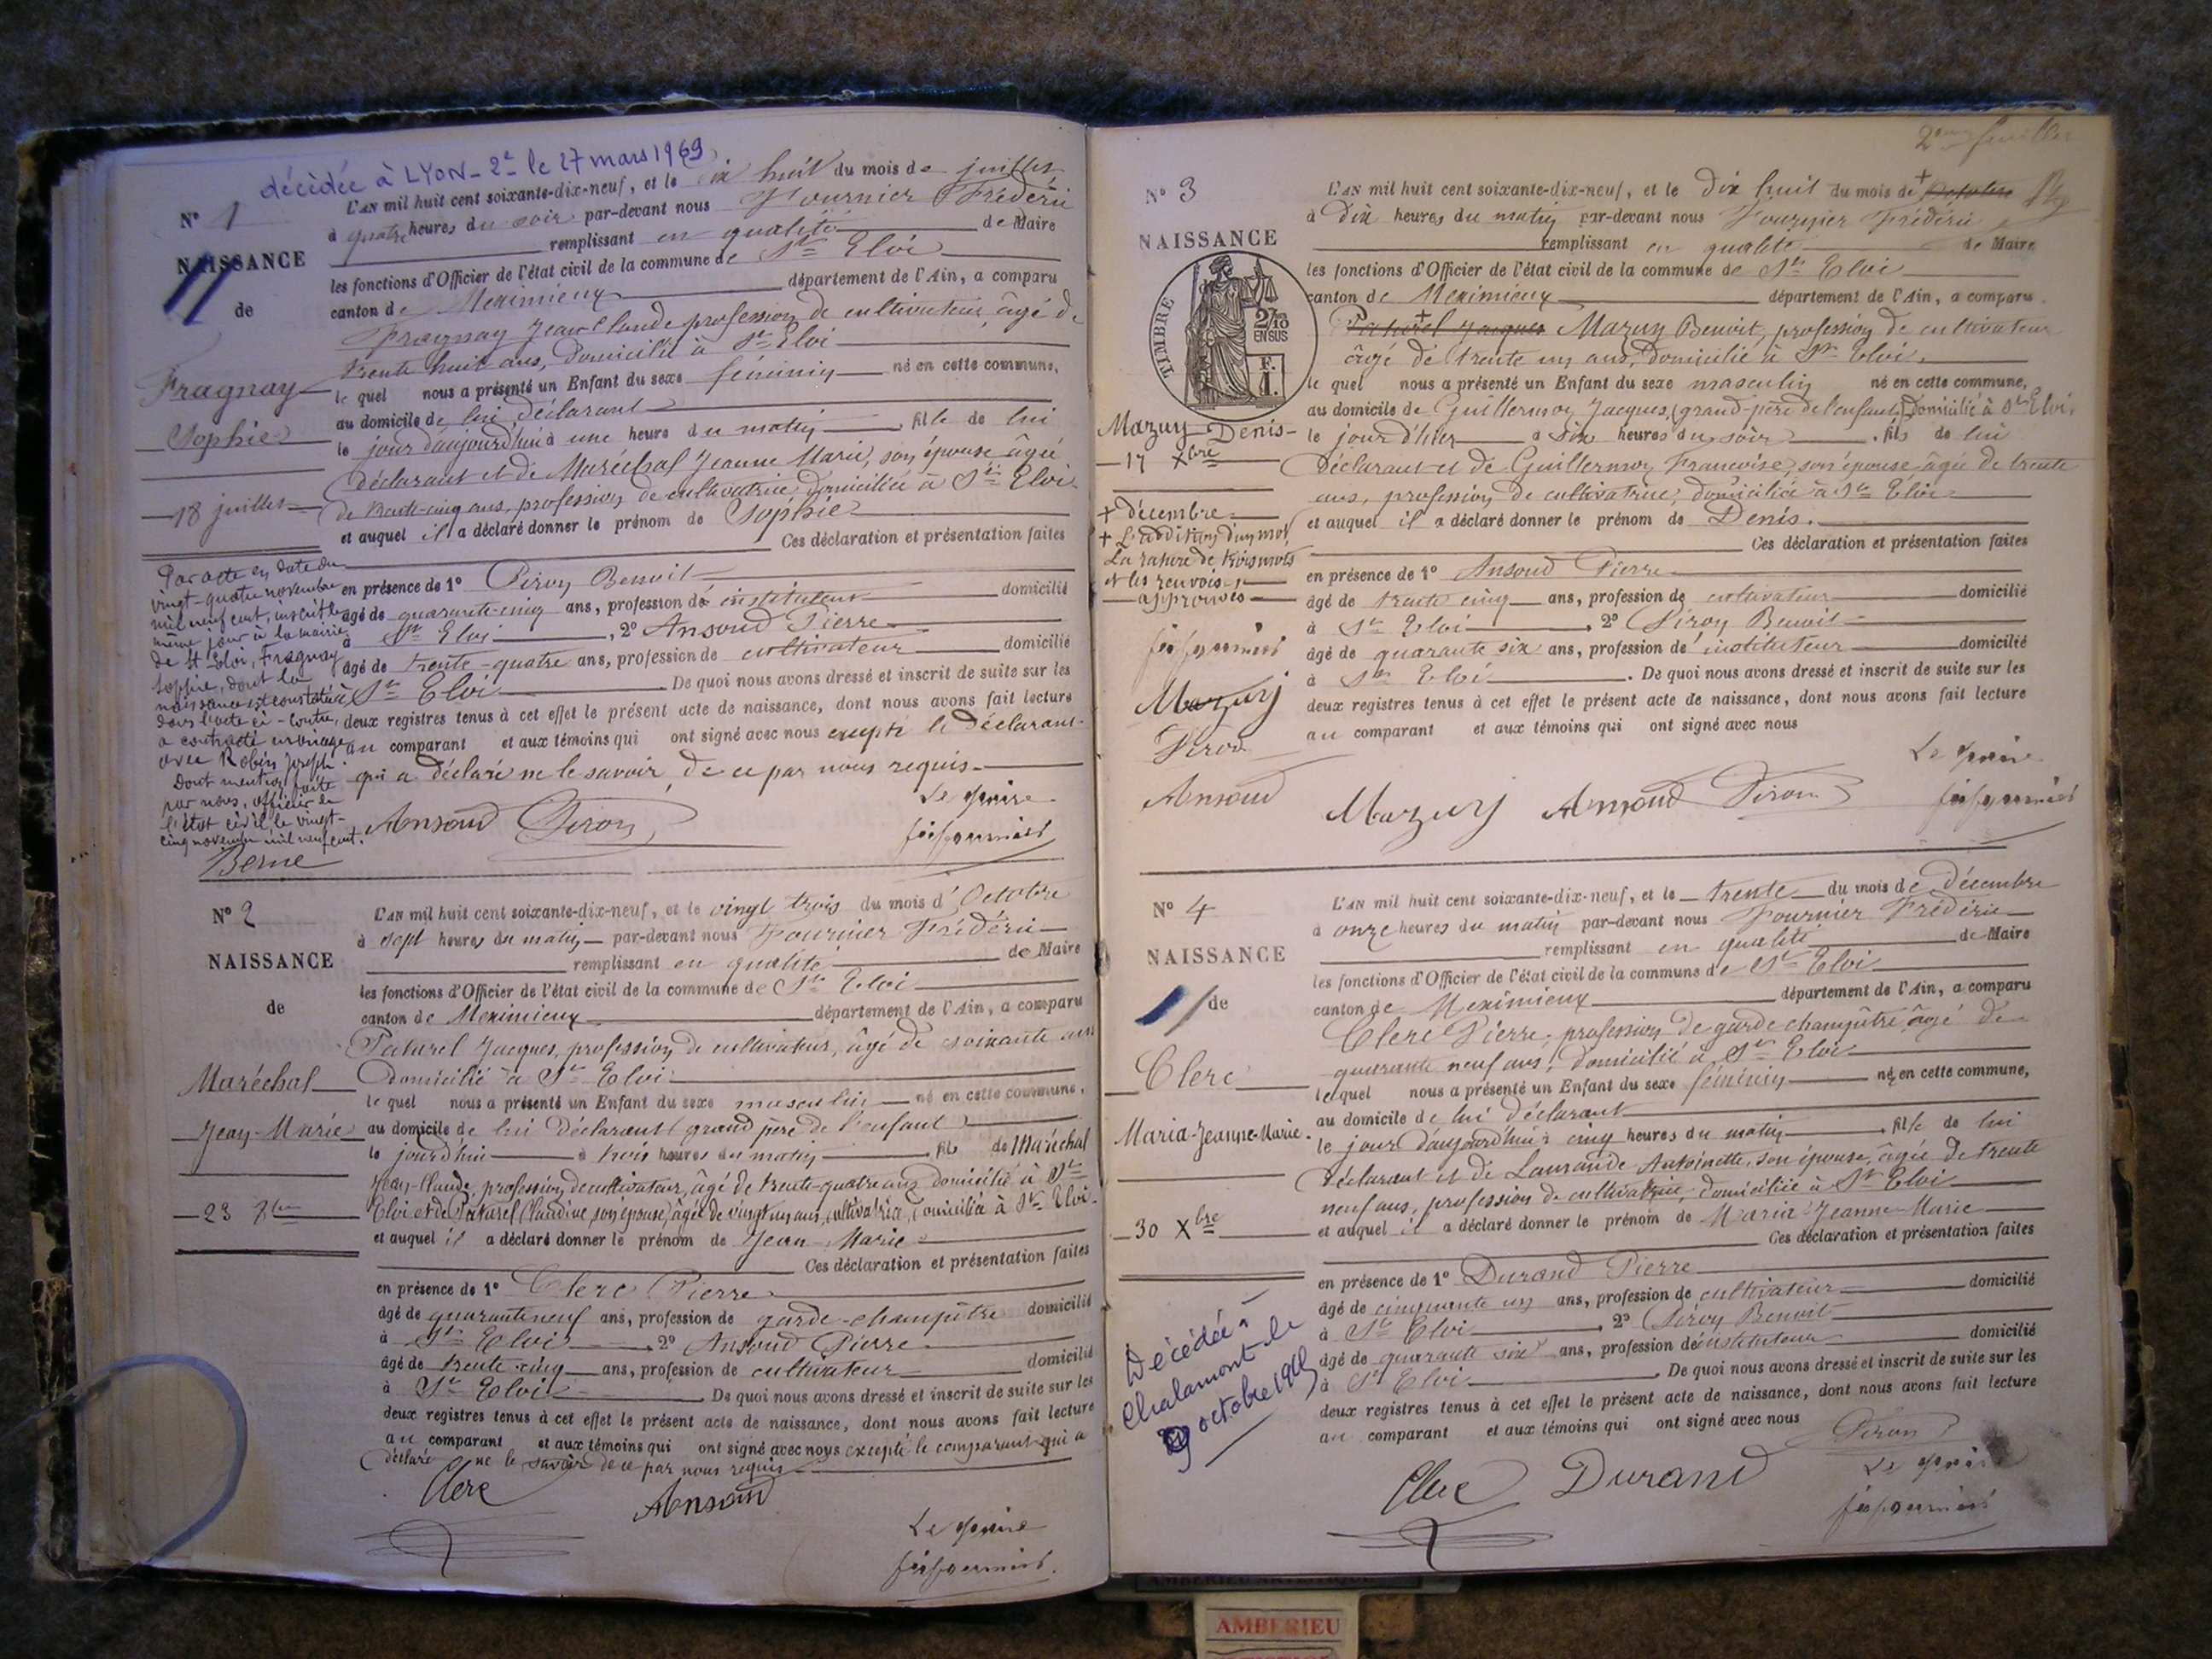 décédée à LYON-2e le 27 mars 1969
N° 1
NAISSANCE
de
Fragnay
Sophie
18 juillet
L'AN mil huit cent soixante-dix-neuf, et le dix huit du mois de juillet
à quatre heures du soir par-devant nous Fournier Frédéric
remplissant en qualité de Maire
les fonctions d'Officier de l'état civil de la commune de St Eloi
canton de Meximieux département de l'Ain, a comparu
Fragnay Jean Claude profession de cultivateur, âgé de
trente huit ans, domicilié à St Eloi
lequel nous a présenté un Enfant du sexe féminin né en cette commune,
au domicile de lui déclarant
le jour d'aujourd'hui à une heure du matin fille de lui
déclarant et de Maréchal Jeanne Marie, son épouse âgée
de trente cinq ans, profession de cultivatrice, domiciliée à St Eloi.
et auquel il a déclaré donner le prénom de Sophie
Ces déclaration et présentation faites
en présence de 1° Piron Benoit
âgé de quarante-cinq ans, profession d'instituteur domicilié
à St Eloi, 2° Ansoud Pierre
âgé de trente-quatre ans, profession de cultivateur domicilié
à St Eloi De quoi nous avons dressé et inscrit de suite sur les
deux registres tenus à cet effet le présent acte de naissance, dont nous avons fait lecture
au comparant et aux témoins qui ont signé avec nous excepté le déclarant
qui a déclaré ne le savoir, de ce par nous requis.
Ansoud Piron
Le Maire
Par acte en date du
vingt-quatre novembre
mil neuf cent, inscrit le
même jour à la mairie
de St Eloi, Fragnay
Sophie, dont la
naissance est constatée
dans l'acte ci-contre,
a contracté mariage
avec Robin Joseph.
Dont mention faite
par nous, officier de
l'état civil le vingt-
cinq novembre mil neuf cent.
Berne
N° 2
NAISSANCE
de
Maréchal
Jean-Marie
23 8bre
L'AN mil huit cent soixante-dix-neuf, et le vingt trois du mois d'Octobre
à sept heures du matin par-devant nous Fournier Frédéric
remplissant en qualité de Maire
les fonctions d'Officier de l'état civil de la commune de St Eloi
canton de Meximieux département de l'Ain, a comparu
Paturel Jacques, profession de cultivateur, âgé de soixante ans
domicilié à St Eloi
lequel nous a présenté un Enfant du sexe masculin né en cette commune,
au domicile de lui déclarant (grand père de l'enfant)
le jourd'hui à trois heures du matin fils de Maréchal
Jean-Claude, profession de cultivateur, âgé de trente-quatre ans domicilié à St
Eloi et de Paturel Claudine, son épouse, âgée de vingt un ans, cultivatrice, domiciliée à St Eloi.
et auquel il a déclaré donner le prénom de Jean Marie
Ces déclaration et présentation faites
en présence de 1° Clerc Pierre
âgé de quarante neuf ans, profession de garde-champêtre domicilié
à St Eloi, 2° Ansoud Pierre
âgé de trente-cinq ans, profession de cultivateur domicilié
à St Eloi De quoi nous avons dressé et inscrit de suite sur les
deux registres tenus à cet effet le présent acte de naissance, dont nous avons fait lecture
au comparant et aux témoins qui ont signé avec nous excepté le comparant qui a
déclaré ne le savoir de ce par nous requis
Clerc Ansoud
Le Maire
2ème feuillet
N° 3
NAISSANCE
de
TIMBRE
2/10
EN SUS
F.
1.
Mazuy Denis
17 Xbre
+ décembre
+ L'addition d'un mot,
La rature de trois mots
et les renvois
approuvés
Mazuy
Piron
Ansoud
L'AN mil huit cent soixante-dix-neuf, et le dix huit du mois de + Octobre
à dix heures du matin par-devant nous Fournier Frédéric
remplissant en qualité de Maire
les fonctions d'Officier de l'état civil de la commune de St Eloi
canton de Meximieux département de l'Ain, a comparu
Paturel Jacques Mazuy Benoit, profession de cultivateur
âgé de trente un ans, domicilié à St Eloi,
lequel nous a présenté un Enfant du sexe masculin né en cette commune,
au domicile de Guillermoz Jacques, (grand-père de l'enfant) domicilié à St Eloi,
le jour d'hier à six heures du soir fils de lui
déclarant et de Guillermoz Françoise, son épouse âgée de trente
ans, profession de cultivatrice, domiciliée à St Eloi
et auquel il a déclaré donner le prénom de Denis.
Ces déclaration et présentation faites
en présence de 1° Ansoud Pierre
âgé de trente cinq ans, profession de cultivateur domicilié
à St Eloi, 2° Piron Benoit
âgé de quarante six ans, profession d'instituteur domicilié
à St Eloi. De quoi nous avons dressé et inscrit de suite sur les
deux registres tenus à cet effet le présent acte de naissance, dont nous avons fait lecture
au comparant et aux témoins qui ont signé avec nous
Le Maire
Mazuy Ansoud Piron
N° 4
NAISSANCE
de
Clerc
Maria-Jeanne-Marie.
30 Xbre
Décédée à
Chalamont le
octobre
L'AN mil huit cent soixante-dix-neuf, et le trente du mois de Décembre
à onze heures du matin par-devant nous Fournier Frédéric
remplissant en qualité de Maire
les fonctions d'Officier de l'état civil de la commune de St Eloi
canton de Meximieux département de l'Ain, a comparu
Clerc Pierre, profession de garde champêtre âgé de
quarante neuf ans, domicilié à St Eloi
lequel nous a présenté un Enfant du sexe féminin né en cette commune,
au domicile de lui déclarant
le jour d'aujourd'hui à cinq heures du matin fille de lui
déclarant et de Laurande Antoinette, son épouse, âgée de trente
neuf ans, profession de cultivatrice, domiciliée à St Eloi
et auquel il a déclaré donner le prénom de Maria Jeanne Marie
Ces déclaration et présentation faites
en présence de 1° Durand Pierre
âgé de cinquante un ans, profession de cultivateur domicilié
à St Eloi, 2° Piron Benoit
âgé de quarante six ans, profession d'instituteur domicilié
à St Eloi. De quoi nous avons dressé et inscrit de suite sur les
deux registres tenus à cet effet le présent acte de naissance, dont nous avons fait lecture
au comparant et aux témoins qui ont signé avec nous
Piron
Clerc Durand
Le Maire
AMBERIEU